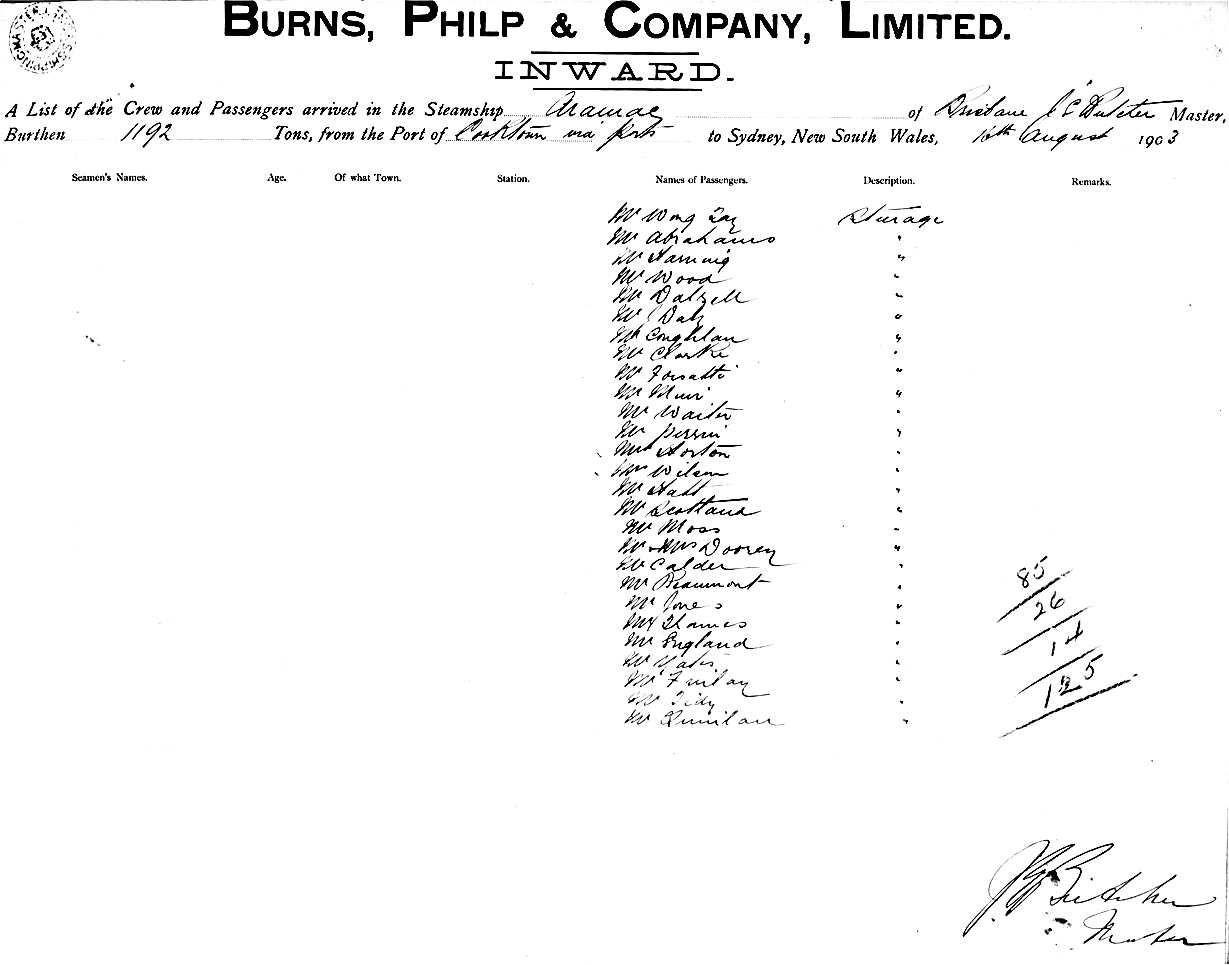 BURNS, PHILP & COMPANY, LIMITED.
INWARD.
A List of the Crew and Passengers arrived in the Steamship Aramac of Brisbane J C Butcher Master,
Burthen 1192 Tons, from the Port of Cooktown via ports to Sydney, New South Wales, 16th August 1903
Seamen's Names. Age. Of what Town. Station. Names of Passengers. Description. Remarks.
Mr Wong Steerage
Mr Abrahams "
Mr "
Mr Wood "
Mr Dalzell "
Mr "
Mr Coughlan "
Mr Clarke "
Mr "
Mr Muir "
Mr Waiter "
Mr Perrin "
Mrs Horton "
Mrs Wilson "
Mr "
Mr Scotland "
Mr Moss "
Mr & Mrs Doorey "
Mr Calder "
85
Mr Beaumont "
Mr Jones "
26
Mr Thames "
Mr England "
14
Mr Yates "
Mr "
125
Mr Tidy "
Mr Quinlan "
Butcher
Master